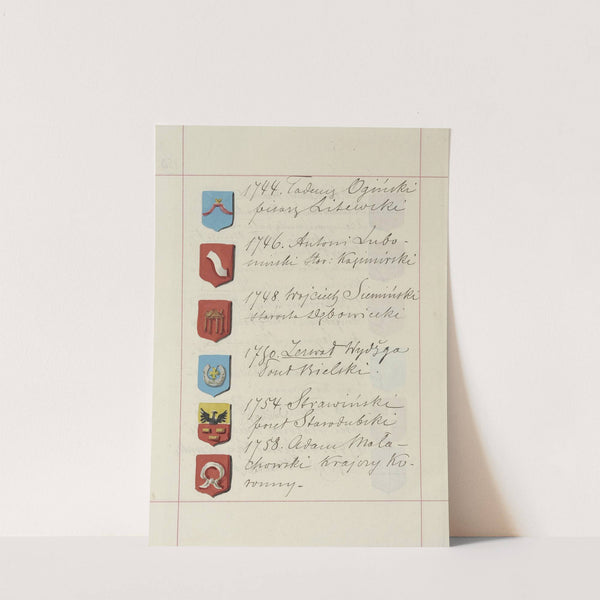 1744. Tadeusz Ogiński
pisarz Litewski
1746. Antoni Lubo-
mirski Star: Kazimirski
1748 Wojciech Siemiński
starosta Dębowiecki
1750. Wydżga
Bielski.
1754. Strawiński
poseł Starodubski
1758. Adam Mała-
chowski Krajczy Ko-
ronny.-